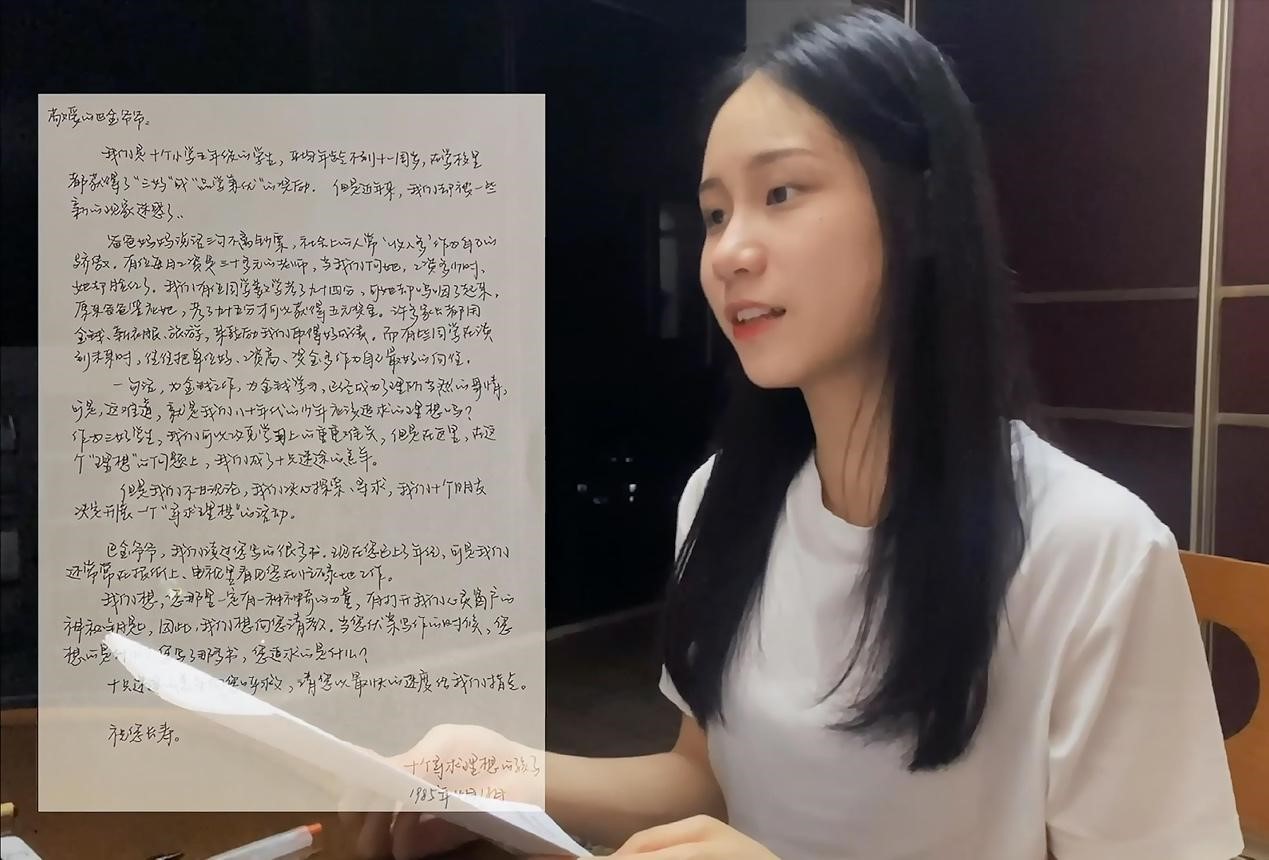 敬爱的巴金爷爷。
我们是十个小学五年级的学生，平均年龄不到十一周岁，在学校里
都获得了“三好”或“品学兼优”的奖励. 但是近年来，我们却被一些
新的现象迷惑了..
爸爸妈妈说话三句不离钞票，社会上的人常‘收入多’作为自己的
骄傲. 有位每月工资是三十多元的老师，当我们问她，工资多少时、
她却脸红了. 我们有位同学数学考了九十四分，可她却呜咽了起来，
原来爸爸答应她，考了九十五分才可以获得五元奖金. 许多家长都用
金钱、新衣服、旅游，来鼓励我们取得好成绩. 而有些同学在谈
到未来时，往往把单位好、工资高、奖金多作为自己最好的向往.
一句话，为金钱工作，为金钱学习，已经成为了理所当然的事情，
可是，这难道，就是我们八十年代的少年应该追求的理想吗？
作为三好学生，我们可以攻克学习上的重重难关，但是在这里，在这
个“理想”的问题上，我们成了十只迷途的羔羊.
但是我们不甘沉沦，我们决心探索、寻求，我们十个朋友
决定开展一个“寻求理想”的活动.
巴金爷爷，我们读过您写的很多书. 现在您已上了年纪，可是我们
还常常在报纸上、电视里看见您在顽强地工作.
我们想，您那里一定有一种神奇的力量，有打开我们心灵窗户的
神秘钥匙，因此，我们想向您请教. 当您伏案写作的时候，您
想的是什么？您写了那多书，您追求的是什么？
十只迷途的羔羊向您呼救，请您以最快的速度给我们指点。
祝您长寿。
十个寻求理想的孩子
1985年 月 日